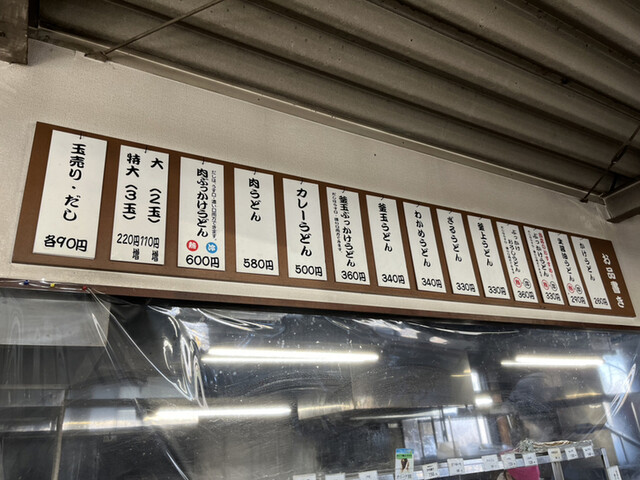 お品書き
かけうどん
260円
290円
ぶっかけうどん
330円
360円
釜上うどん
330円
ざるうどん
330円
わかめうどん
340円
釜玉うどん
340円
釜玉ぶっかけうどん
360円
カレーうどん
500円
肉うどん
580円
肉ぶっかけうどん
熱
冷
600円
大(2玉)
110円増
特大(3玉)
220円増
玉売り・だし
各90円